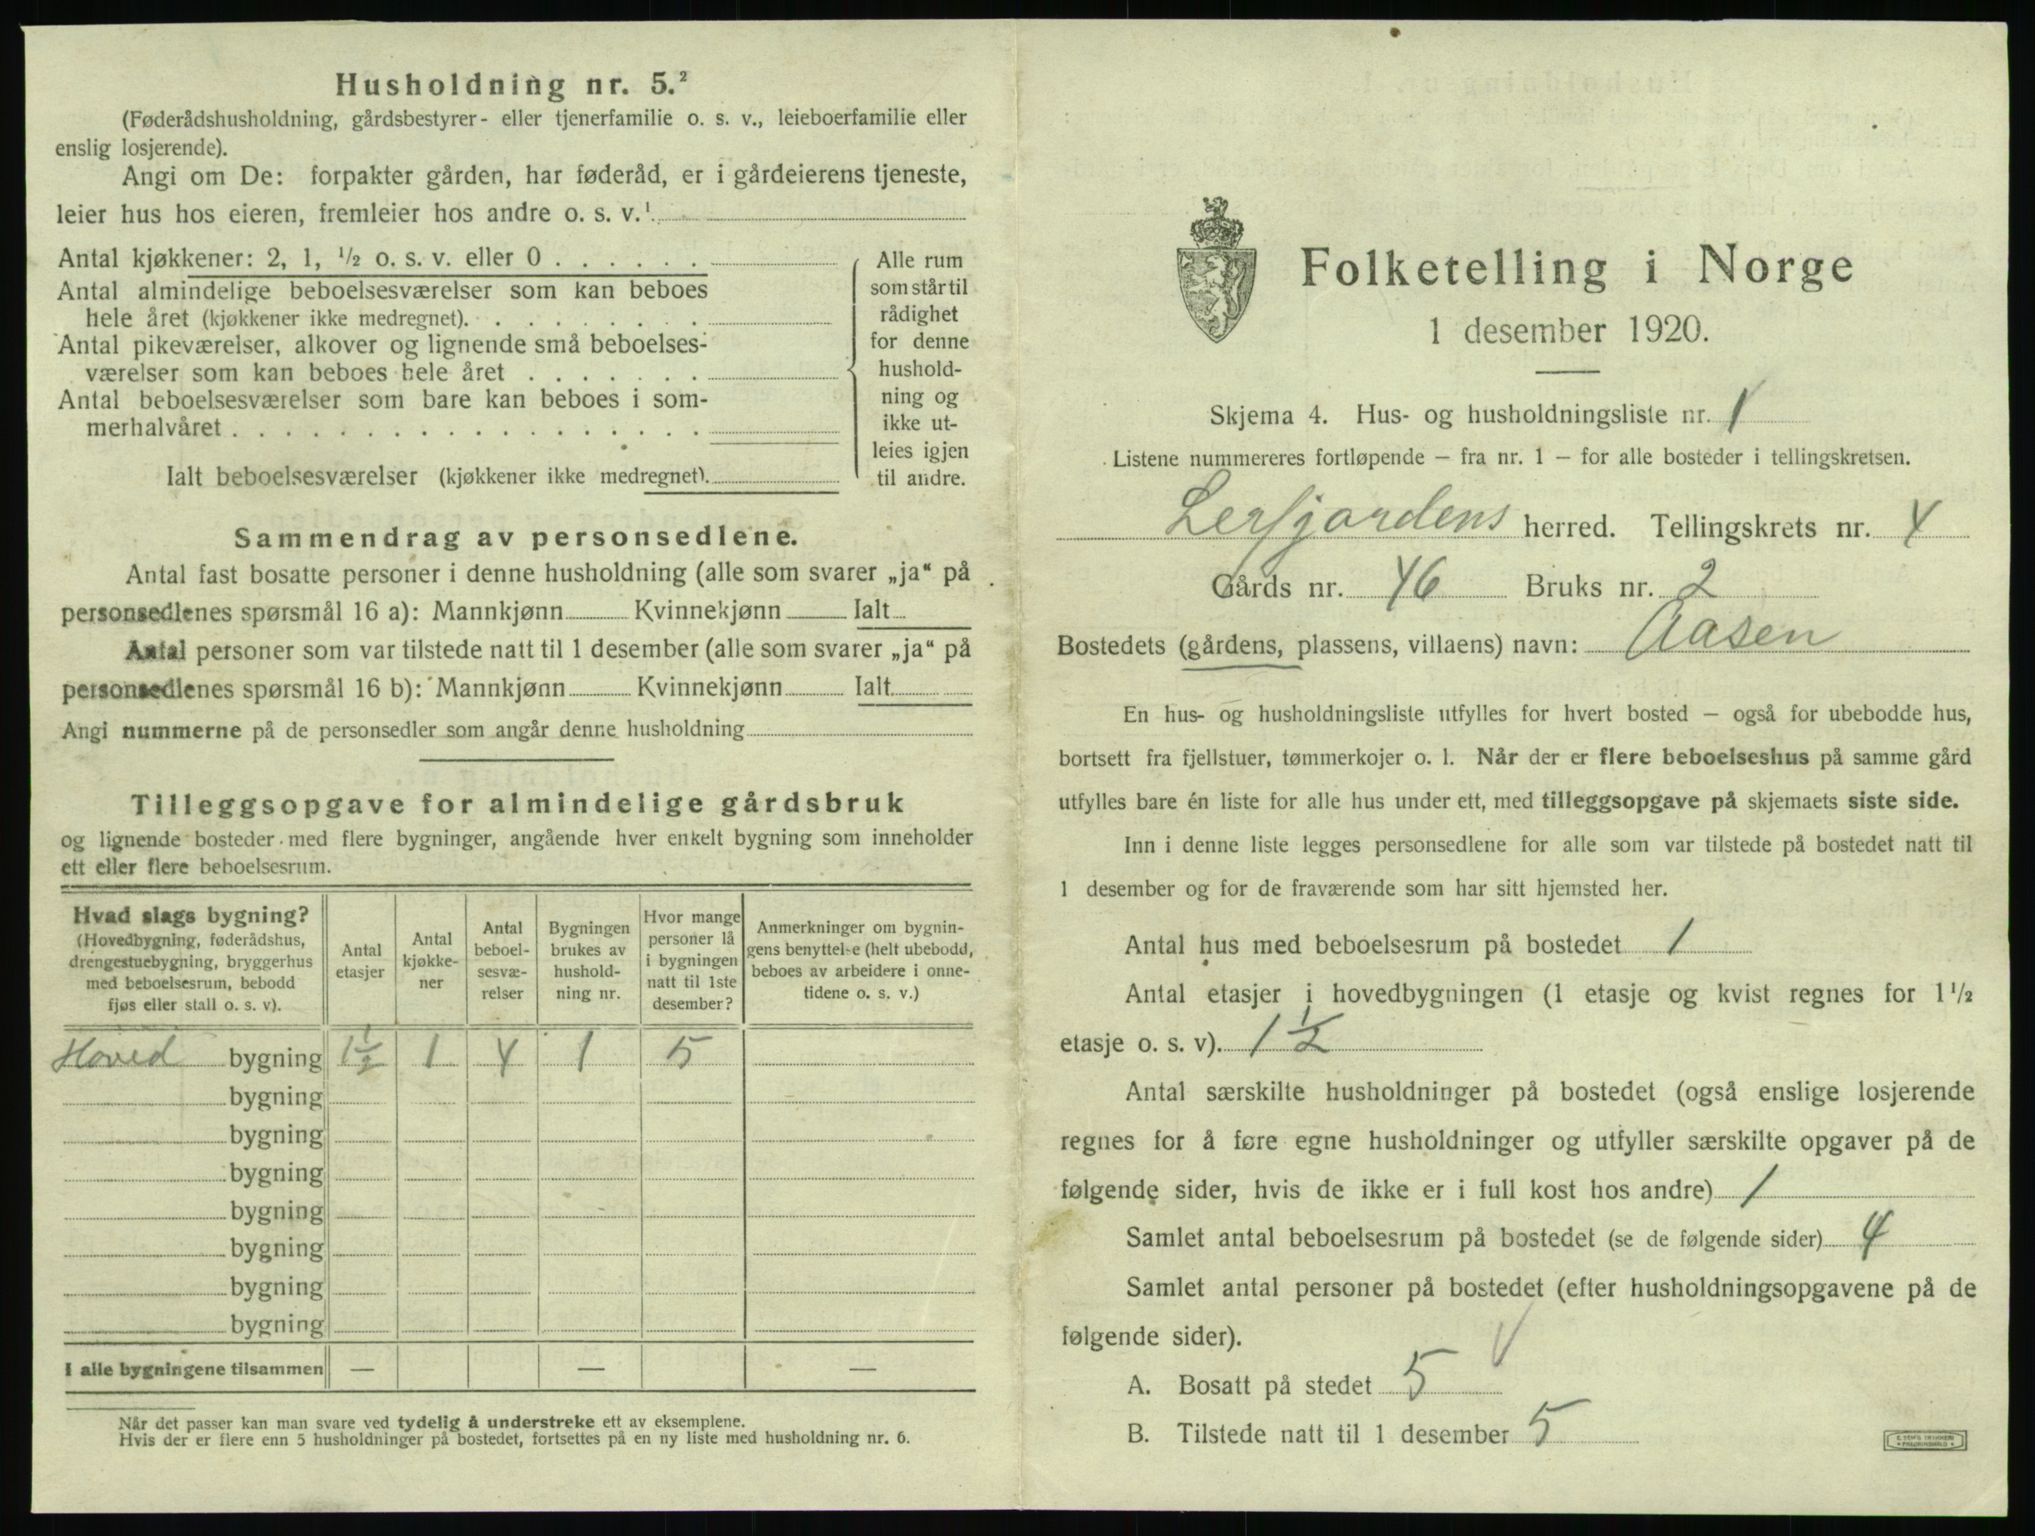 Husholdning nr. 5.²
(Føderådshusholdning, gårdsbestyrer- eller tjenerfamilie o. s. v., leieboerfamilie eller
enslig losjerende).
Angi om De: forpakter gården, har føderåd, er i gårdeierens tjeneste,
leier hus hos eieren, fremleier hos andre o. s. v.¹
Antal kjøkkener: 2, 1, ½ o. s. v. eller 0
Antal almindelige beboelsesværelser som kan beboes
hele året (kjøkkener ikke medregnet).
Antal pikeværelser, alkover og lignende små beboelses-
værelser som kan beboes hele året
Antal beboelsesværelser som bare kan beboes i som-
merhalvåret
Ialt beboelsesværelser (kjøkkener ikke medregnet).
Alle rum
som står til
rådighet
for denne
hushold-
ning og
ikke ut-
leies igjen
til andre.
Sammendrag av personsedlene.
Antal fast bosatte personer i denne husholdning (alle som svarer „ja“ på
personsedlenes spørsmål 16 a): Mannkjønn Kvinnekjønn Ialt
Antal personer som var tilstede natt til 1 desember (alle som svarer „ja“ på
personsedlenes spørsmål 16 b): Mannkjønn Kvinnekjønn Ialt
Angi nummerne på de personsedler som angår denne husholdning
Tilleggsopgave for almindelige gårdsbruk
og lignende bosteder med flere bygninger, angående hver enkelt bygning som inneholder
ett eller flere beboelsesrum.
Hvad slags bygning?
(Hovedbygning, føderådshus,
drengestuebygning, bryggerhus
med beboelsesrum, bebodd
fjøs eller stall o. s. v).
Antal
etasjer
Antal
kjøkke-
ner
Antal
beboel-
sesvæ-
relser
Bygningen
brukes av
hushold-
ning nr.
Hvor mange
personer lå
i bygningen
natt til 1ste
desember?
Anmerkninger om bygnin-
gens benyttelse (helt ubebodd,
beboes av arbeidere i onne-
tidene o. s. v.)
Hoved bygning 1½ 1 4 1 5
bygning
bygning
bygning
bygning
bygning
bygning
bygning
I alle bygningene tilsammen — — —
Når det passer kan man svare ved tydelig å understreke ett av eksemplene.
Hvis der er flere enn 5 husholdninger på bostedet, fortsettes på en ny liste med husholdning nr. 6.
Folketelling i Norge
1 desember 1920.
Skjema 4. Hus- og husholdningsliste nr. 1
Listene nummereres fortløpende – fra nr. 1 – for alle bosteder i tellingskretsen.
Lerfjordens herred. Tellingskrets nr. 4
Gårds nr. 46 Bruks nr. 2
Bostedets (gårdens, plassens, villaens) navn: Aasen
En hus- og husholdningsliste utfylles for hvert bosted – også for ubebodde hus,
bortsett fra fjellstuer, tømmerkojer o. l. Når der er flere beboelseshus på samme gård
utfylles bare én liste for alle hus under ett, med tilleggsopgave på skjemaets siste side.
Inn i denne liste legges personsedlene for alle som var tilstede på bostedet natt til
1 desember og for de fraværende som har sitt hjemsted her.
Antal hus med beboelsesrum på bostedet 1
Antal etasjer i hovedbygningen (1 etasje og kvist regnes for 1½
etasje o. s. v). 1½
Antal særskilte husholdninger på bostedet (også enslige losjerende
regnes for å føre egne husholdninger og utfyller særskilte opgaver på de
følgende sider, hvis de ikke er i full kost hos andre) 1
Samlet antal beboelsesrum på bostedet (se de følgende sider) 4
Samlet antal personer på bostedet (efter husholdningsopgavene på de
følgende sider).
A. Bosatt på stedet 5
B. Tilstede natt til 1 desember 5